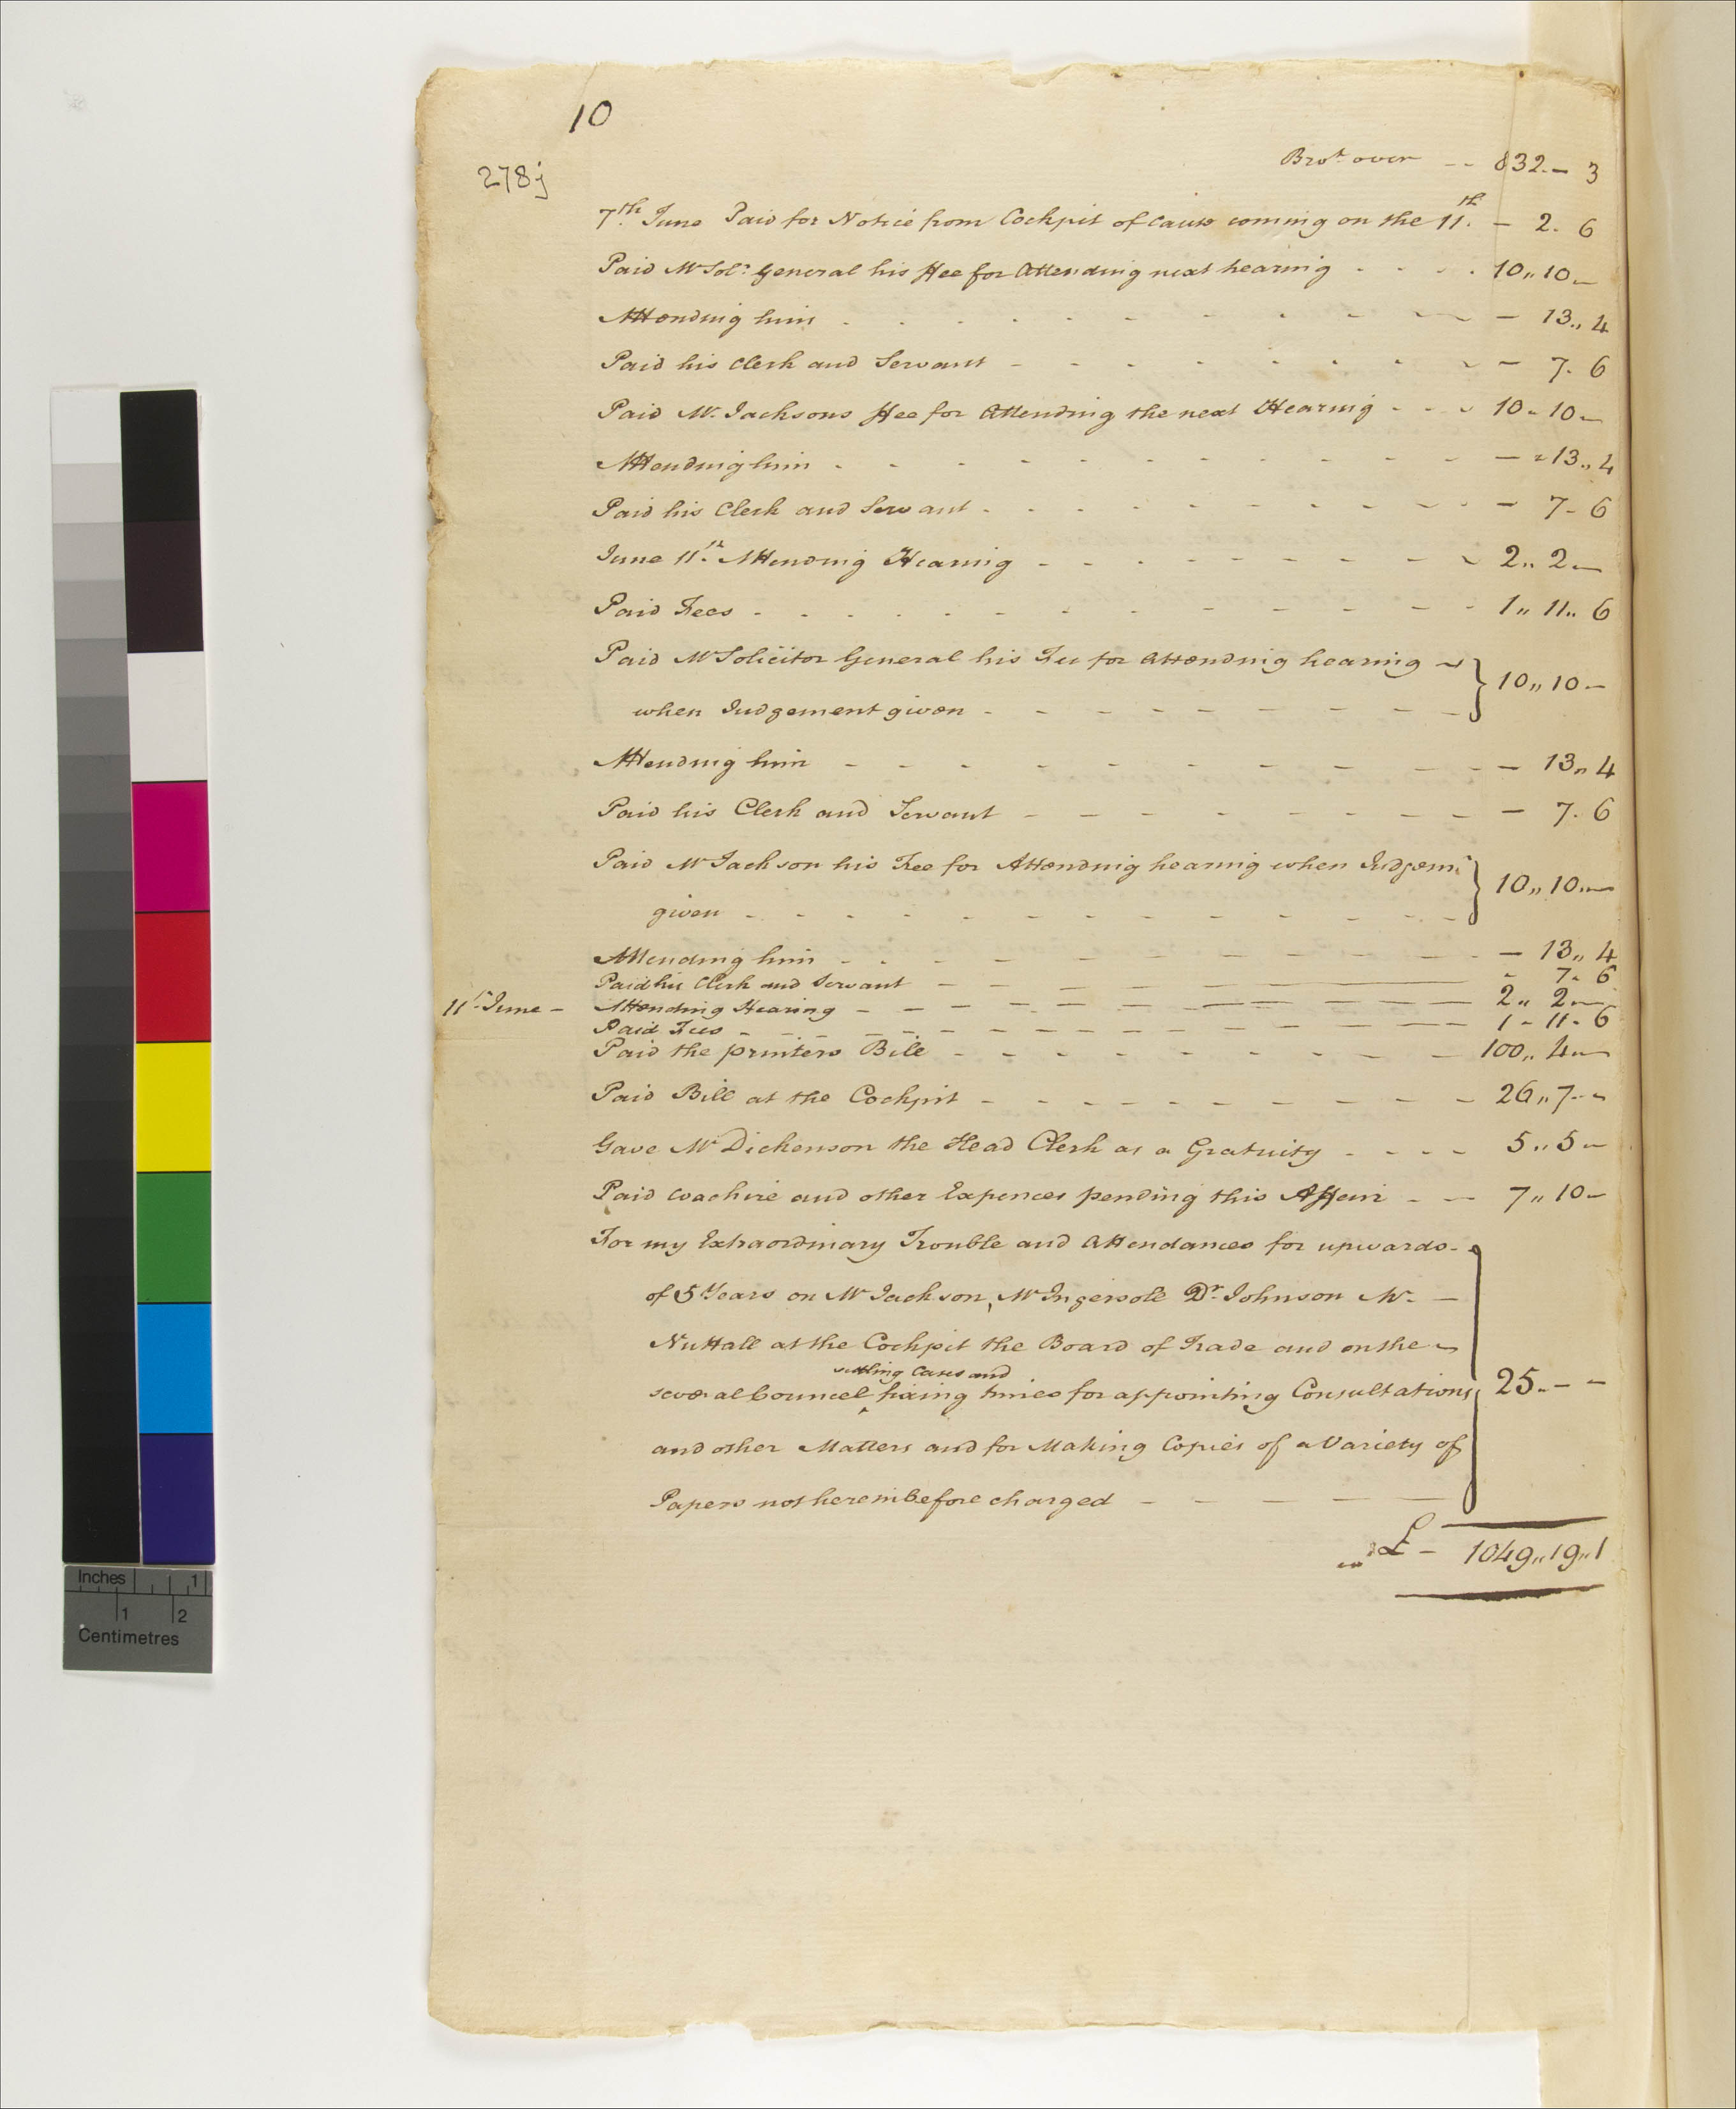 10
278j
Brot. over - - 832. - 3
7th. June Paid for Notice from Cockpit of Cause coming on the 11th. - 2. 6
Paid Mr Solr. General his ffee for Attending next hearing - - - - 10,, 10,, -
Attending him - - - - - - - - - - - - 13,, 4
Paid his Clerk and Servant - - - - - - - - - - 7. 6
Paid Mr. Jacksons ffee for Attending the next Hearing - - - 10 - 10 -
Attending him - - - - - - - - - - - - 13,, 4
Paid his Clerk and Servant - - - - - - - - - - 7 - 6
June 11th. Attending Hearing - - - - - - - - - 2,, 2 -
Paid Fees - - - - - - - - - - - 1,, 11,, 6
Paid Mr Solicitor General his Fee for Attending hearing -
when Judgement given - - - - - - - - - } 10,, 10 -
Attending him - - - - - - - - - - 13,, 4
Paid his Clerk and Servant - - - - - - - - - 7. 6
Paid Mr Jackson his Fee for Attending hearing when Judgemt.
given - - - - - - - - - - - - } 10,, 10 -
Attending him - - - - - - - - - - 13,, 4
Paid his Clerk and Servant - - - - - - - - 7. 6
11th June - Attending Hearing - - - - - - - - - 2,, 2 -
Paid Fees - - - - - - - - - - - 1 - 11 - 6
Paid the printers Bill - - - - - - - - 100,, 4 -
Paid Bill at the Cockpit - - - - - - - - - 26,, 7 - -
Gave Mr Dickenson the Head Clerk as a Gratuity - - - - 5,, 5 -
Paid Coachire and other Expences pending this Affair - - 7,, 10 -
For my Extraordinary Trouble and Attendances for upwards -
of 5 Years on Mr Jackson, Mr Ingersole Dr. Johnson Mr. -
Nuttall at the Cockpit the Board of Trade and on the -
settling Cases and
several Councel ‸ fixing times for appointing Consultations } 25. - -
and other Matters and for Making Copies of a Variety of
Papers not herein before charged - - - -
£ - 1049,, 19,, 1
Inches 1
1 2
Centimetres